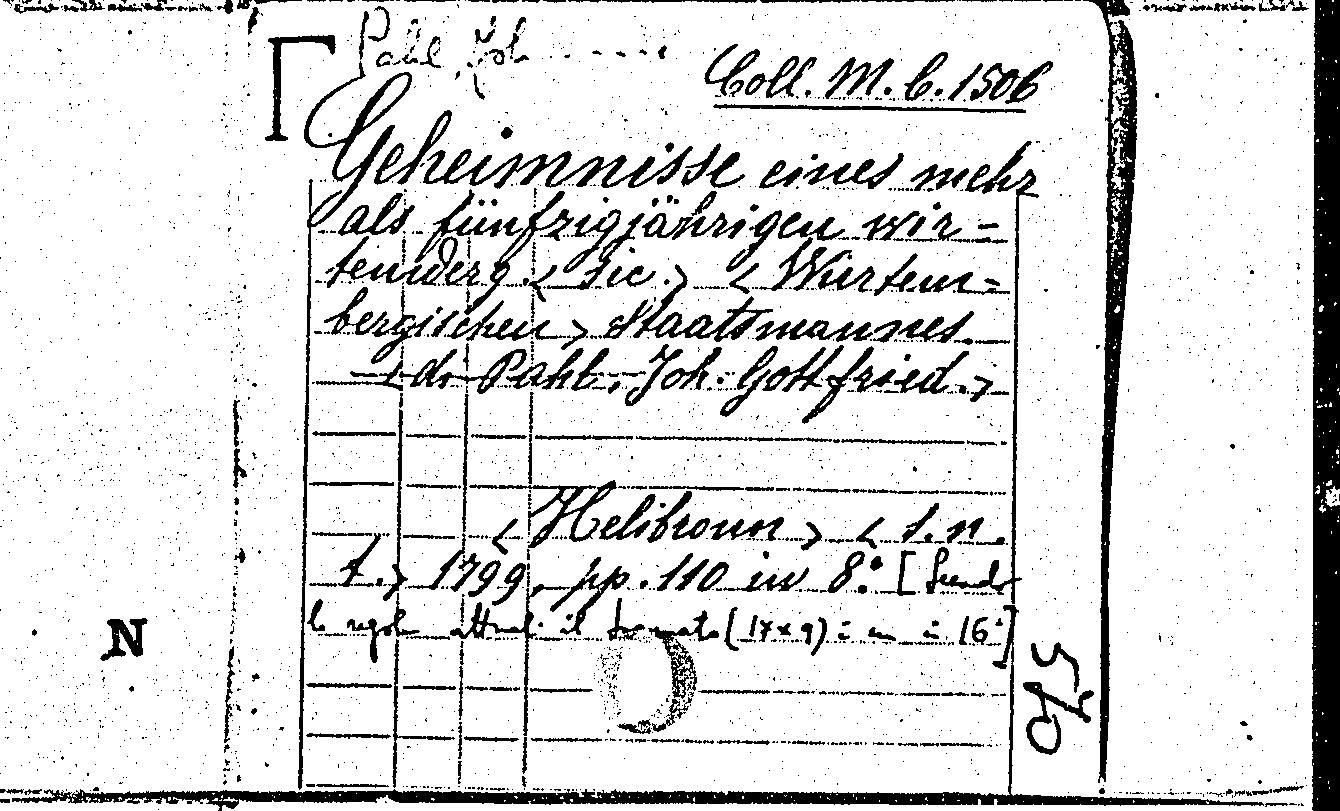 Pahl, Joh.....
Coll. M.C. 1506
Geheimnisse eines mehr
als fünfzigjährigen wir-
temberg. < sic. > < Würtem-
bergischen > Staatsmannes.
—< di Pahl, Joh. Gottfried. >
< Heilbronn > < s. n.
t. > 1799, pp. 110 in 8.° [Secondo
le regole attuali il formato (17x9) è in 16°]
N